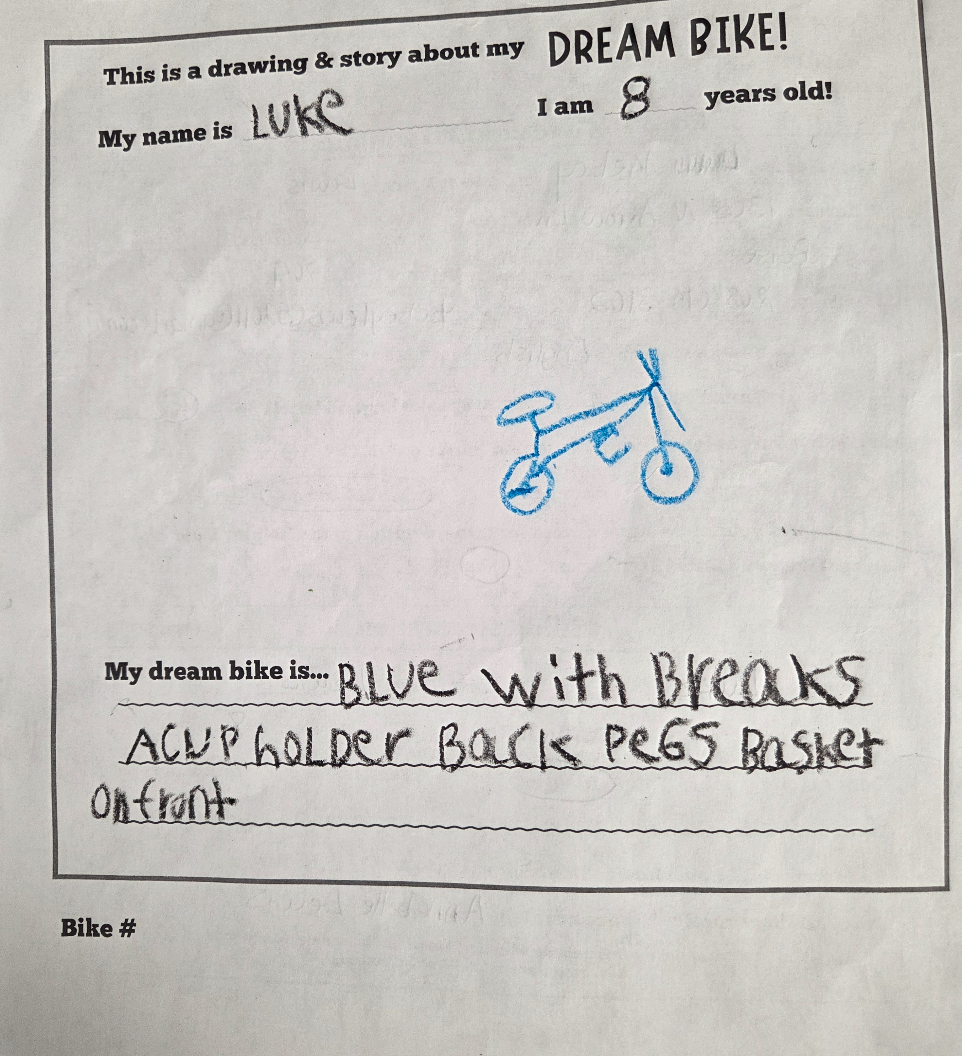 This is a drawing & story about my DREAM BIKE!
My name is LUKe I am 8 years old!
My dream bike is... BLUe with Breaks
A CUP hoLDer Back PeGS Basket
on front
Bike #